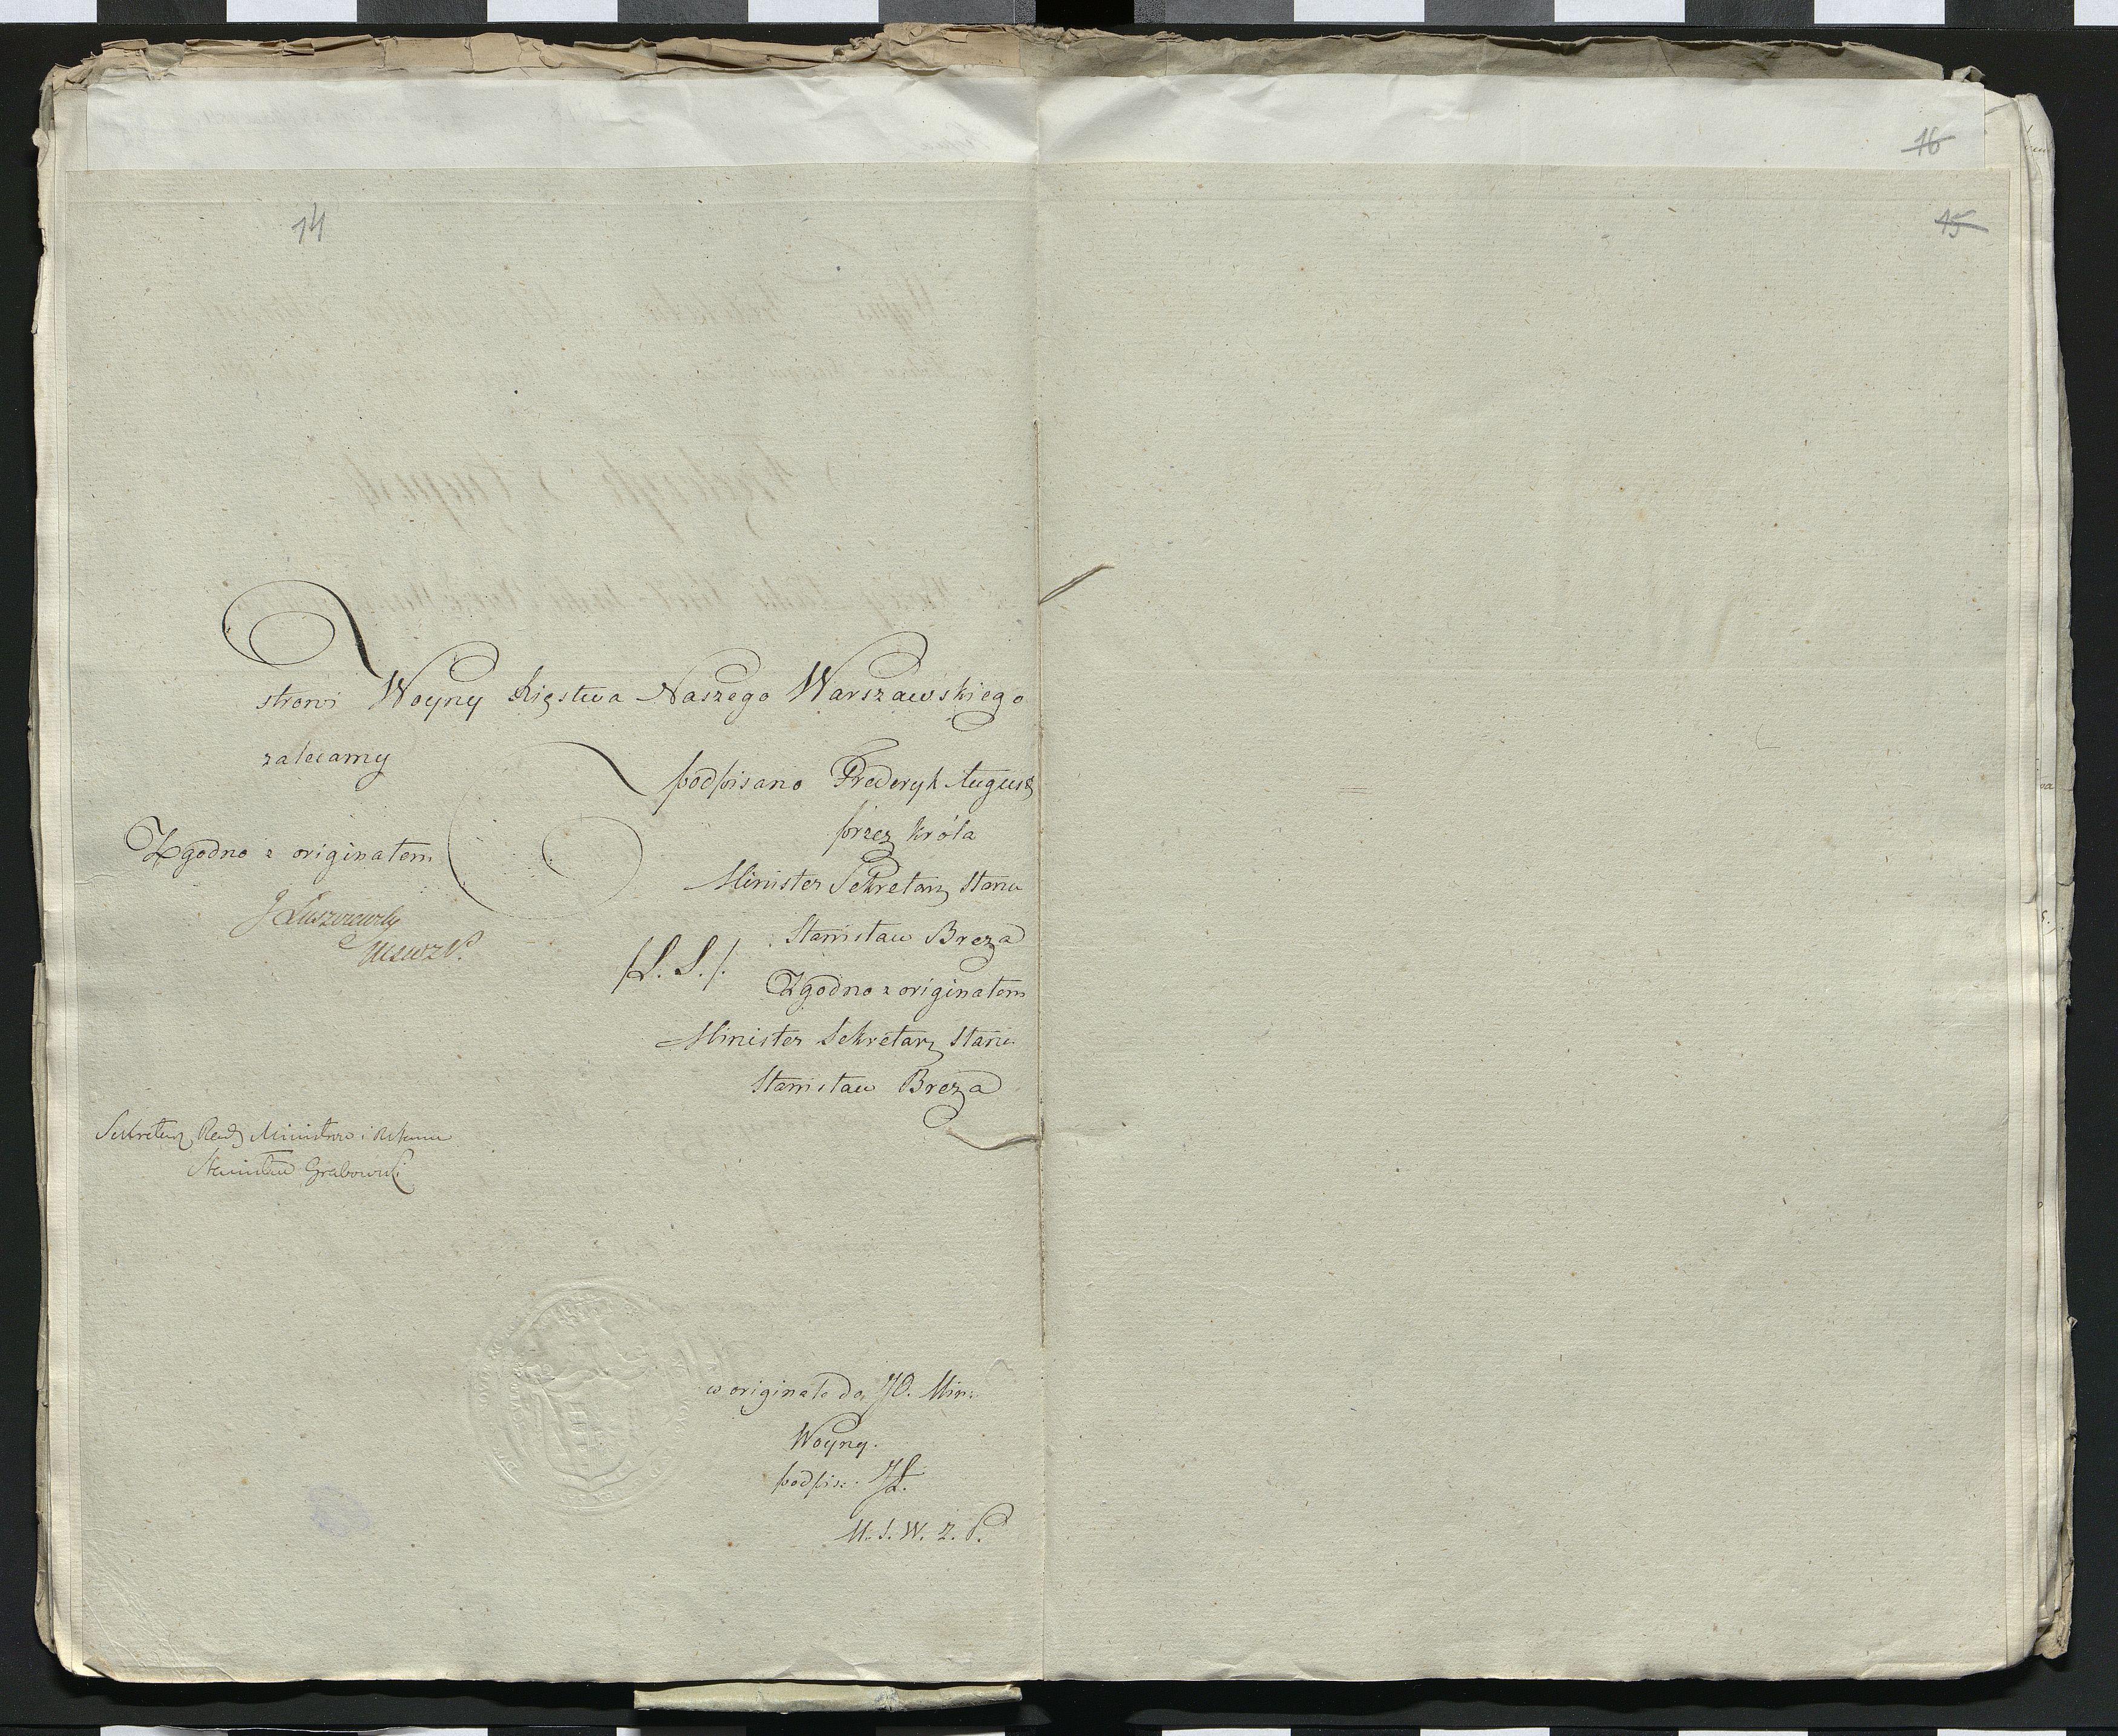 16
14
15
strowi Woyny Xięstwa Naszego Warszawskiego
zalecamy
podpisano Frederyk August
przez króla
Zgodno z originałem
Minister Sekretarz Stanu
J Łuszczewski
Stanisław Breza
MSWZP.
/L. S./.
Zgodno z originałem
Minister Sekretarz Stanu
Stanisław Breza
Sekretarz Rady Ministrów i
Stanisław Grabowski
w originale do JO. Min:
Woyny.
podpis: JŁ.
M. S. W. Z. P.